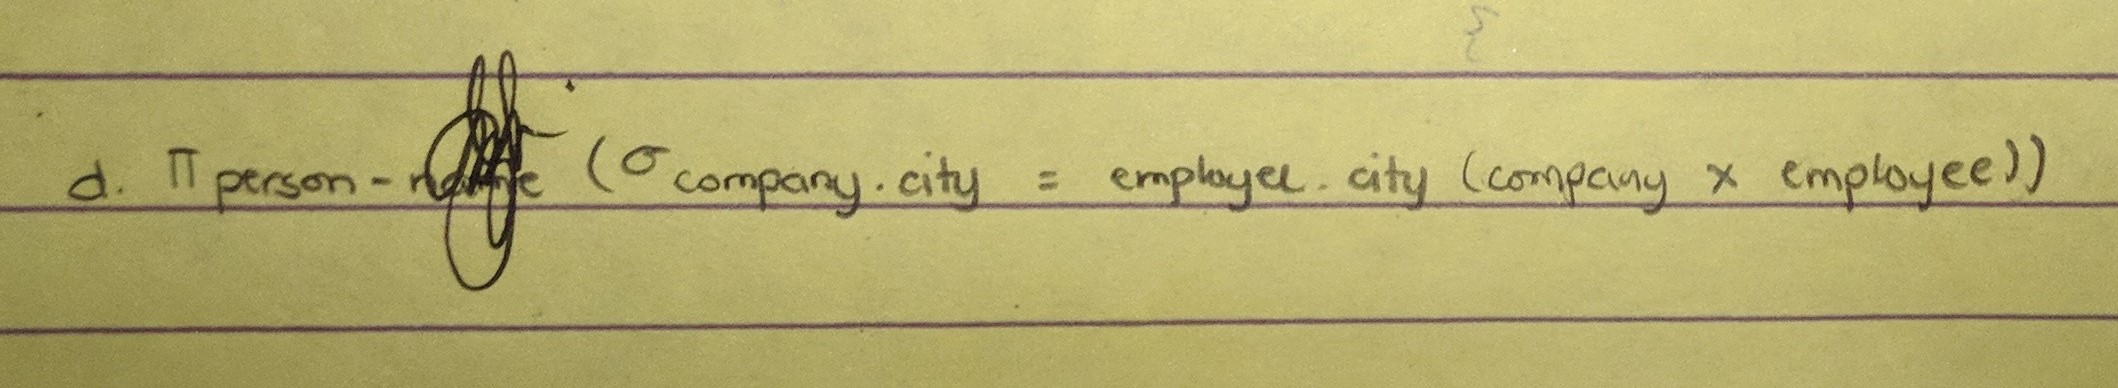 d. Π person-name (σ company.city = employee.city (company x employee))